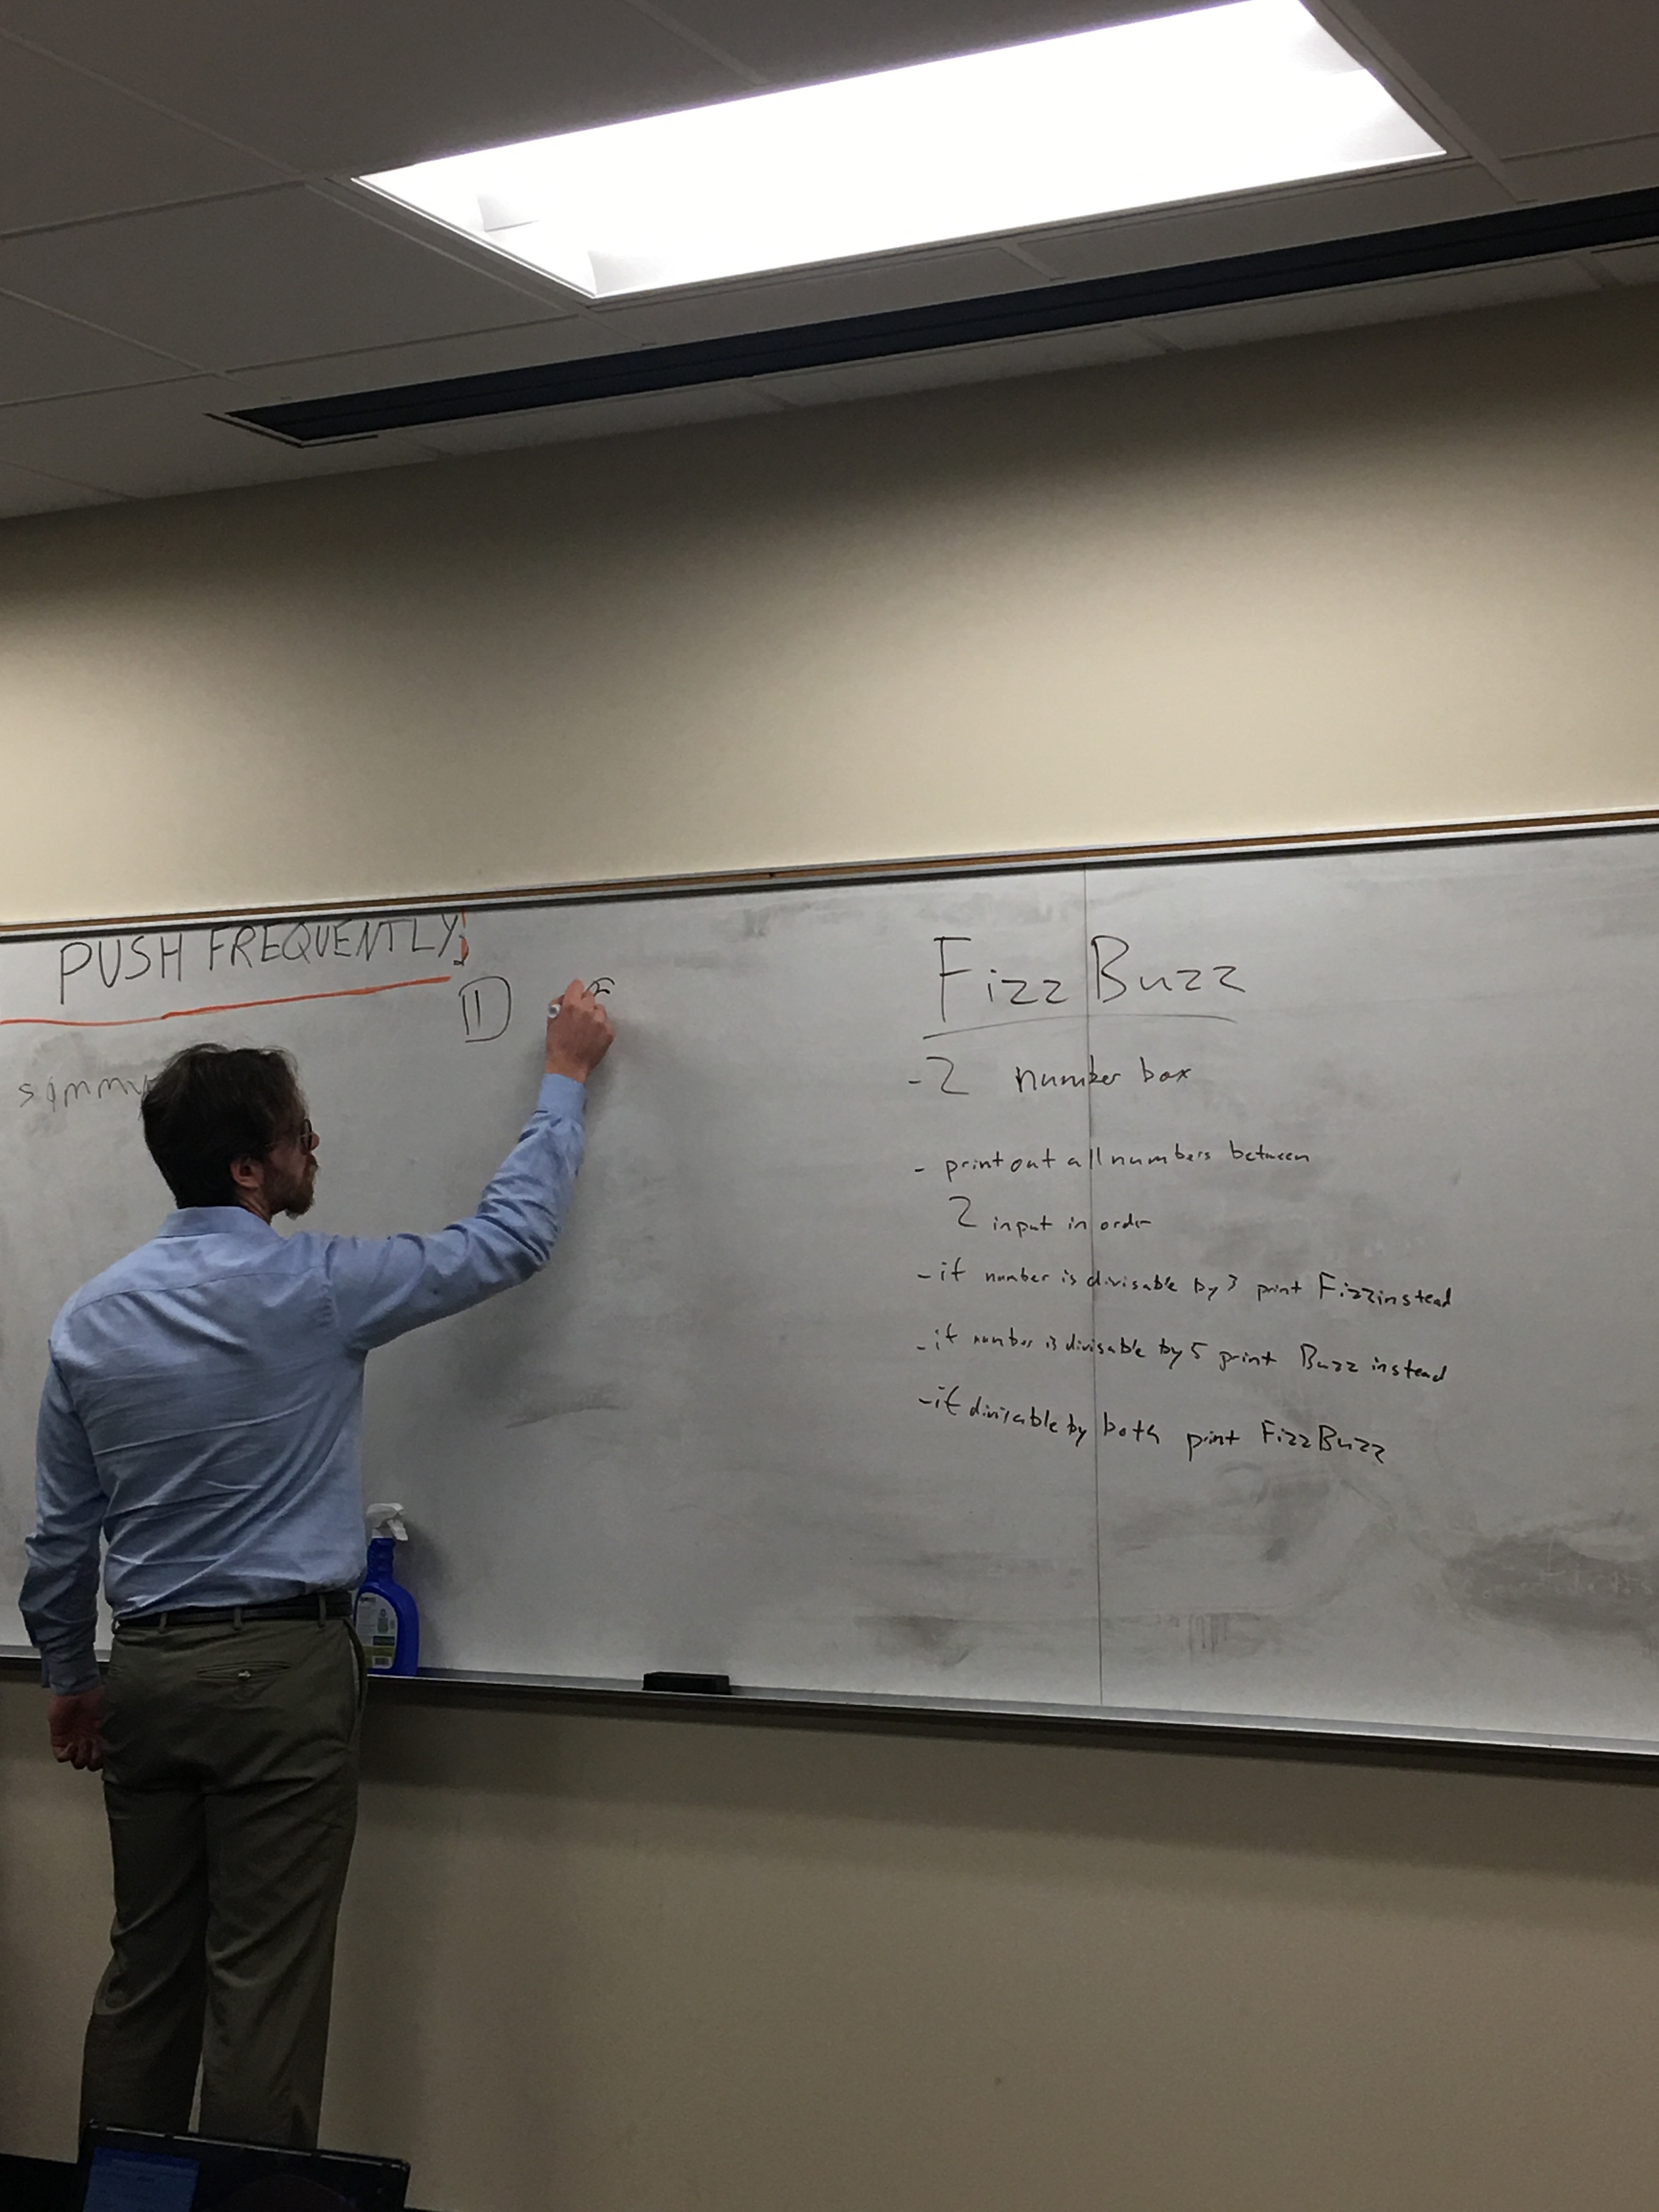 PUSH FREQUENTLY!
FizzBuzz
- 2 number box
- print out all numbers between
2 input in order
- if number is divisable by 3 print Fizz instead
- if number is divisable by 5 print Buzz instead
- if divisable by both print FizzBuzz